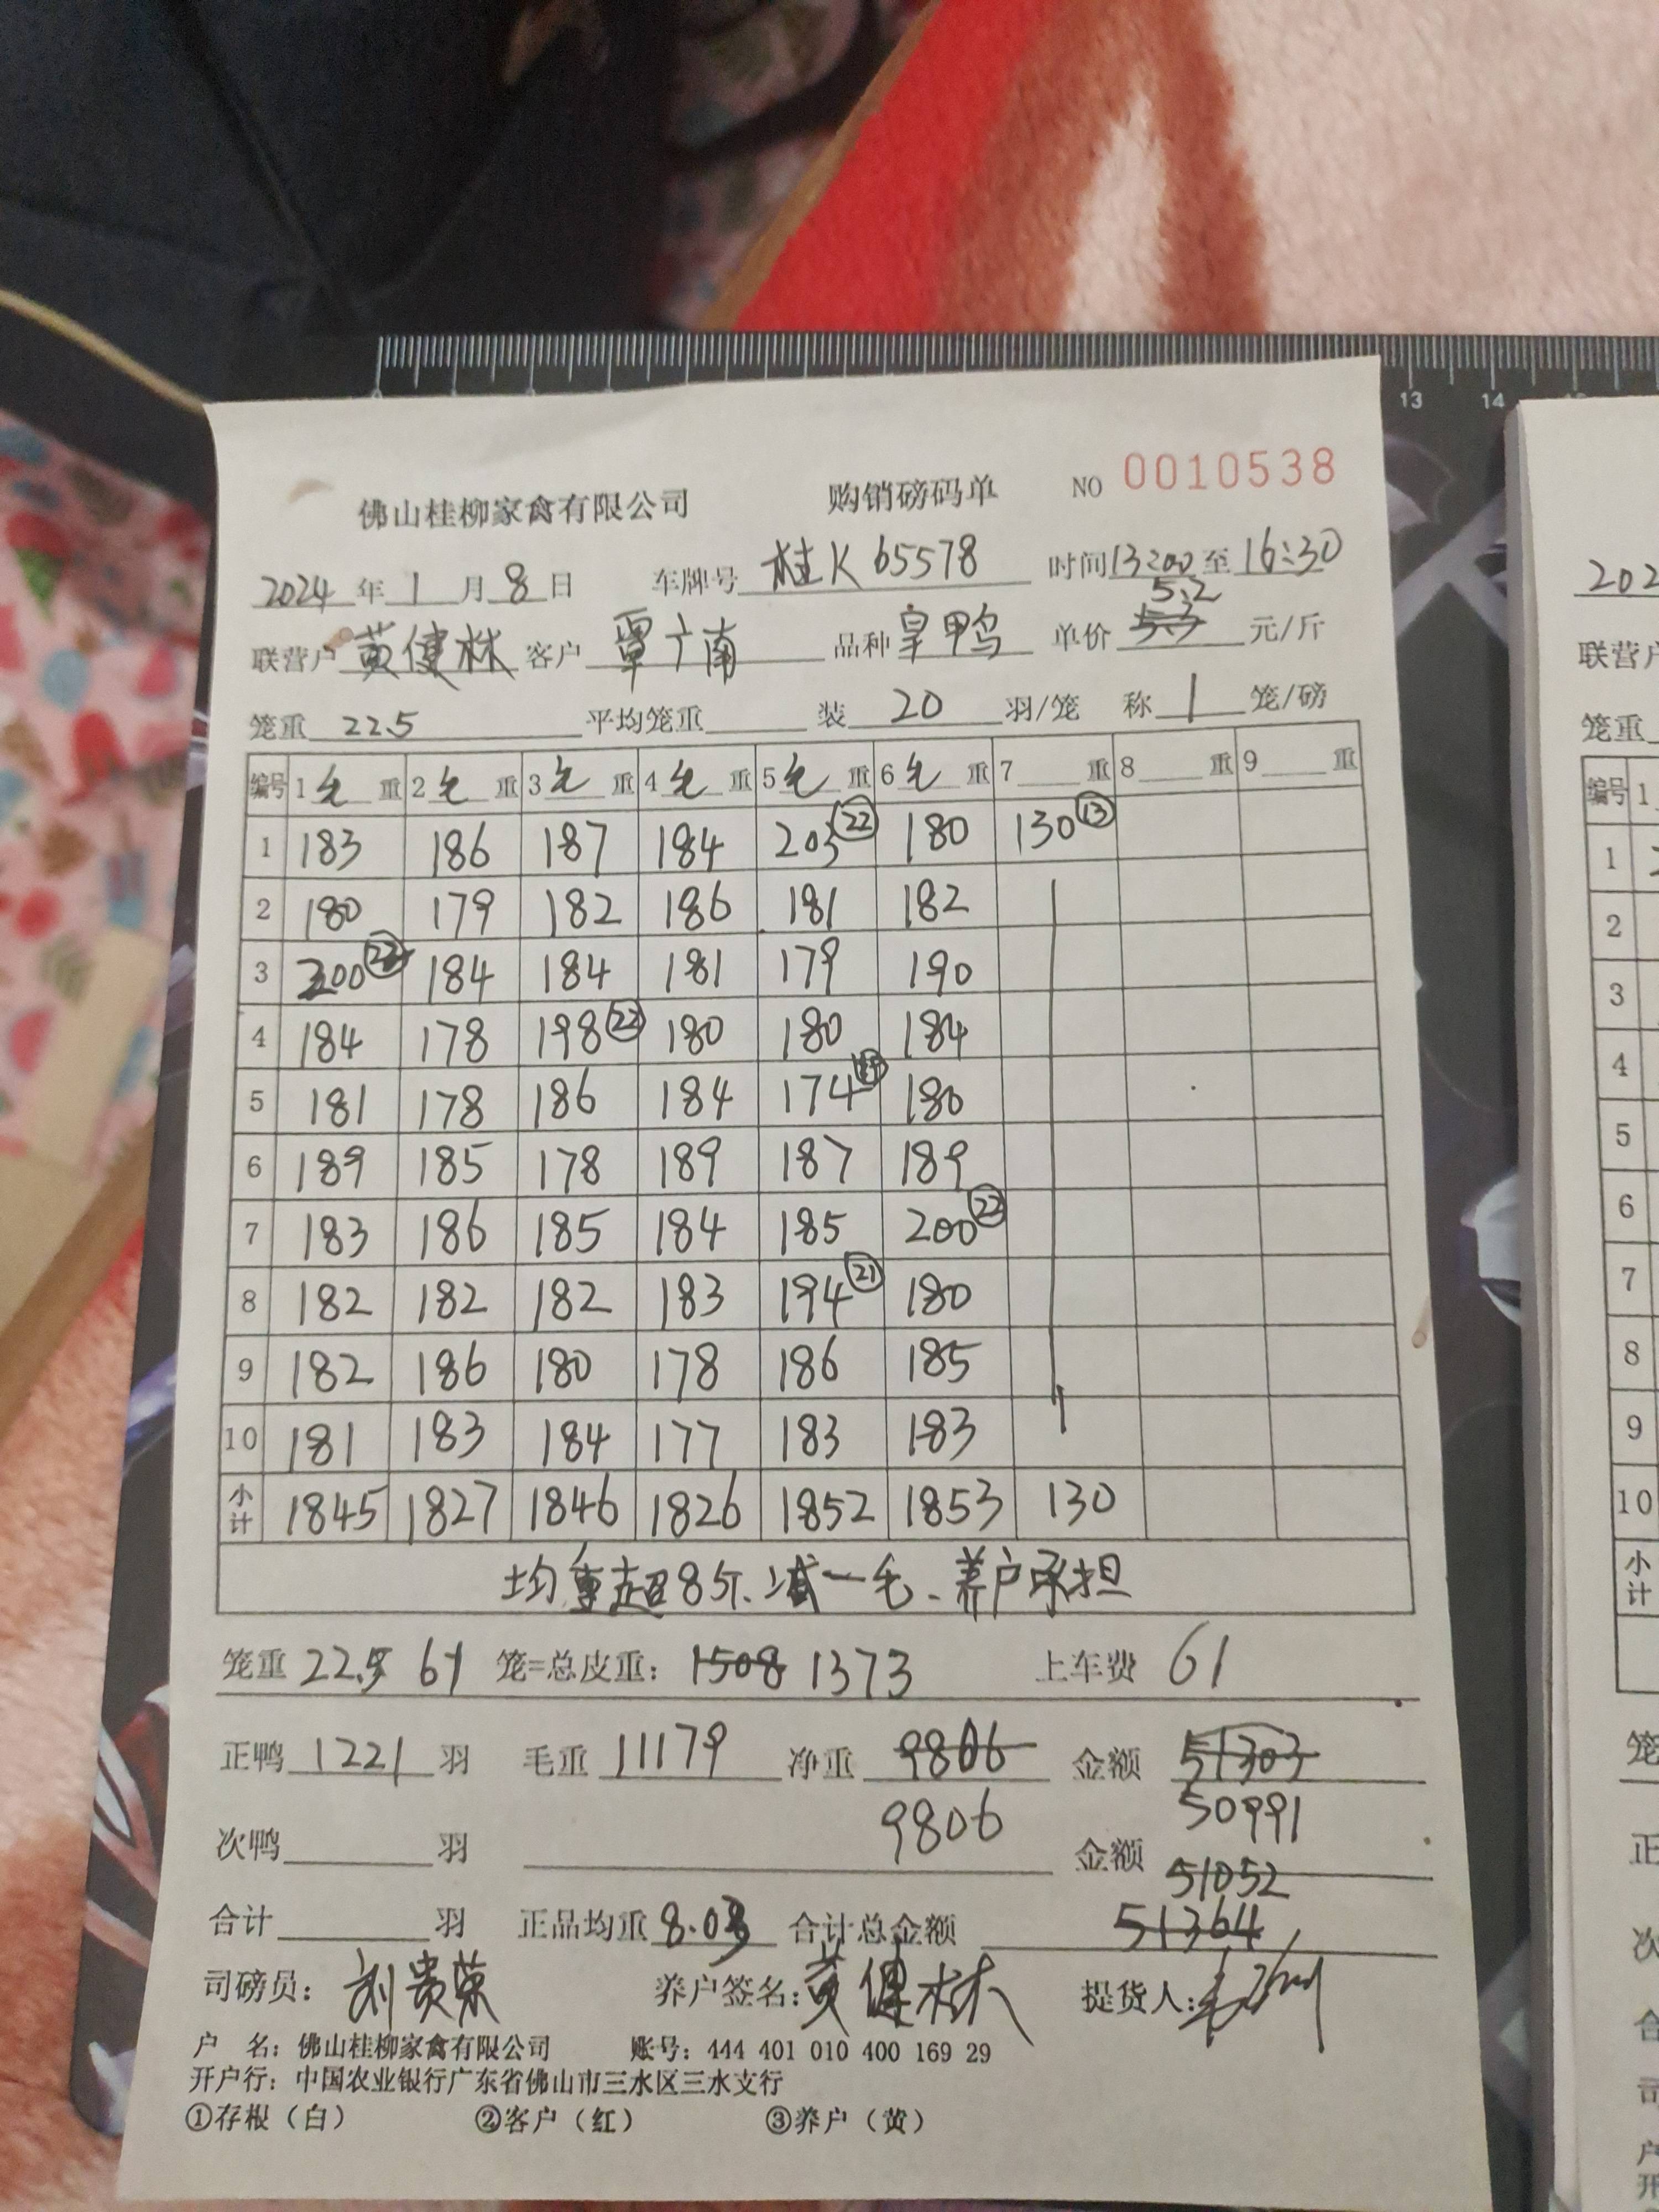 13 14
佛山桂柳家禽有限公司 购销磅码单 NO 0010538
2024 年 1 月 8 日 车牌号 桂K 65578 时间 13:00 至 16:30
5.2
联营户 黄健林 客户 覃广南 品种 皇鸭 单价 5.3 元/斤
笼重 22.5 平均笼重 装 20 羽/笼 称 1 笼/磅
编号 1 毛 重 2 毛 重 3 毛 重 4 毛 重 5 毛 重 6 毛 重 7 重 8 重 9 重
1 183 186 187 184 203 22 180 130 13
2 180 179 182 186 181 182
3 200 22 184 184 181 179 190
4 184 178 198 22 180 180 184
5 181 178 186 184 174 180
6 189 185 178 189 187 189
7 183 186 185 184 185 200 22
8 182 182 182 183 194 21 180
9 182 186 180 178 186 185
10 181 183 184 177 183 183
小计 1845 1827 1846 1826 1852 1853 130
均重超8斤、减一毛、养户承担
笼重 22.5 61 笼=总皮重: 1508 1373 上车费 61
正鸭 1221 羽 毛重 11179 净重 9806 金额 51303
次鸭 羽 9806 金额 50991
51052
合计 羽 正品均重 8.03 合计总金额 51364
司磅员: 刘贵荣 养户签名: 黄健林 提货人:
户 名: 佛山桂柳家禽有限公司 账号: 444 401 010 400 169 29
开户行: 中国农业银行广东省佛山市三水区三水支行
①存根（白） ②客户（红） ③养户（黄）
202
联营户
笼重
编号 1
1
2
3
4
5
6
7
8
9
10
小计
笼
正
次
合
司
户
开